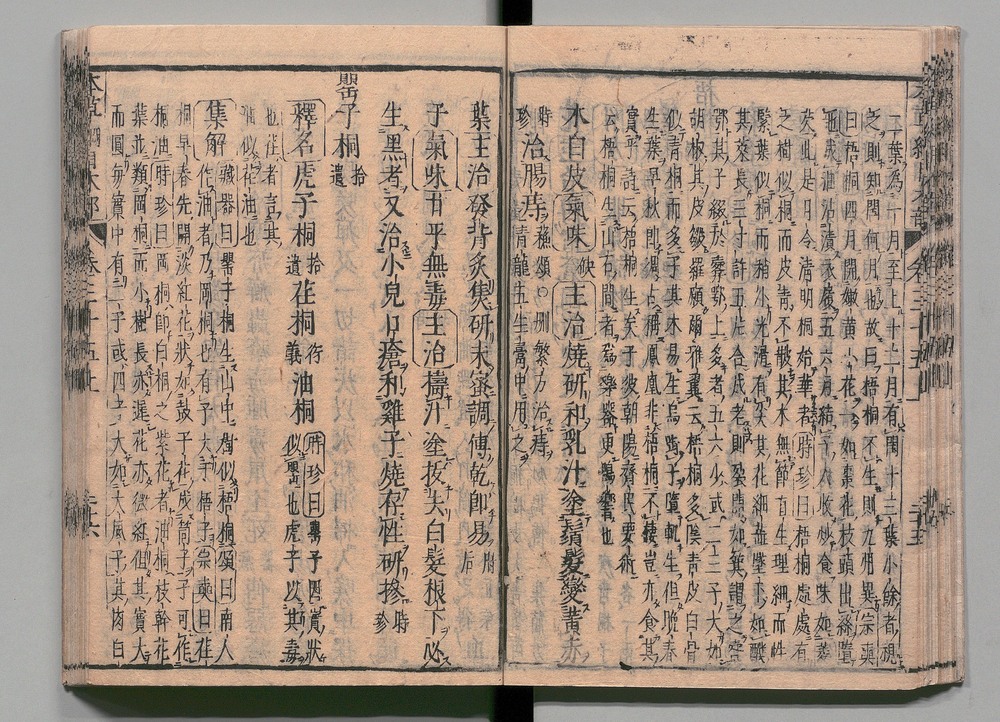 二葉為一月至上十二月有閏十三葉小餘者視
之則知閏何月也故曰梧桐不生則九州異宗奭
曰梧桐四月開嫩黃小花一如棗花枝頭出絲墮
地成油沾漬衣履五六月結子人收炒食味如菱
芡此是月令清明桐始華者時珍曰梧桐處處有
之樹似桐而皮青不皵其木無節直生理細而性
緊葉似桐而稍小光滑有尖其花細蕊墜下如醭
其莢長三寸許五片合成老則裂開如箕謂之橐
鄂其子綴於橐鄂上多者五六少或二三子大如
胡椒其皮皺羅願爾雅翼云梧桐多陰青皮白骨
似青桐而多子其木易生鳥銜子墮輒生但晚春
生葉早秋即凋古稱鳳凰非梧桐不棲豈亦食其
實乎詩云梧桐生矣于彼朝陽齊民要術
云梧桐生山石間者為樂器更鳴響也
木白皮氣味缺主治燒研和乳汁塗鬚髮變黃赤
時珍治腸痔蘇頌○刪繁方治痔青龍五生膏中用之
葉主治發背炙焦研末蜜調傅乾即易肘后
子氣味甘平無毒主治擣汁塗拔去白髮根下必
生黑者又治小兒口瘡和雞子燒存性研摻時珍
罌子桐拾遺
釋名虎子桐拾遺荏桐衍義油桐時珍曰罌子因實狀似罌也虎子以其毒
也荏者言其油似荏油也
集解藏器曰罌子桐生山中樹似梧桐頌曰南人
作油者乃岡桐也有子大于梧子宗奭曰荏
桐早春先開淡紅花狀如鼓子花成筒子子可作
桐油時珍曰岡桐即白桐之紫花者油桐枝幹花
葉並類岡桐而小樹長亦遲花亦微紅但其實大
而圓每實中有二子或四子大如大風子其肉白